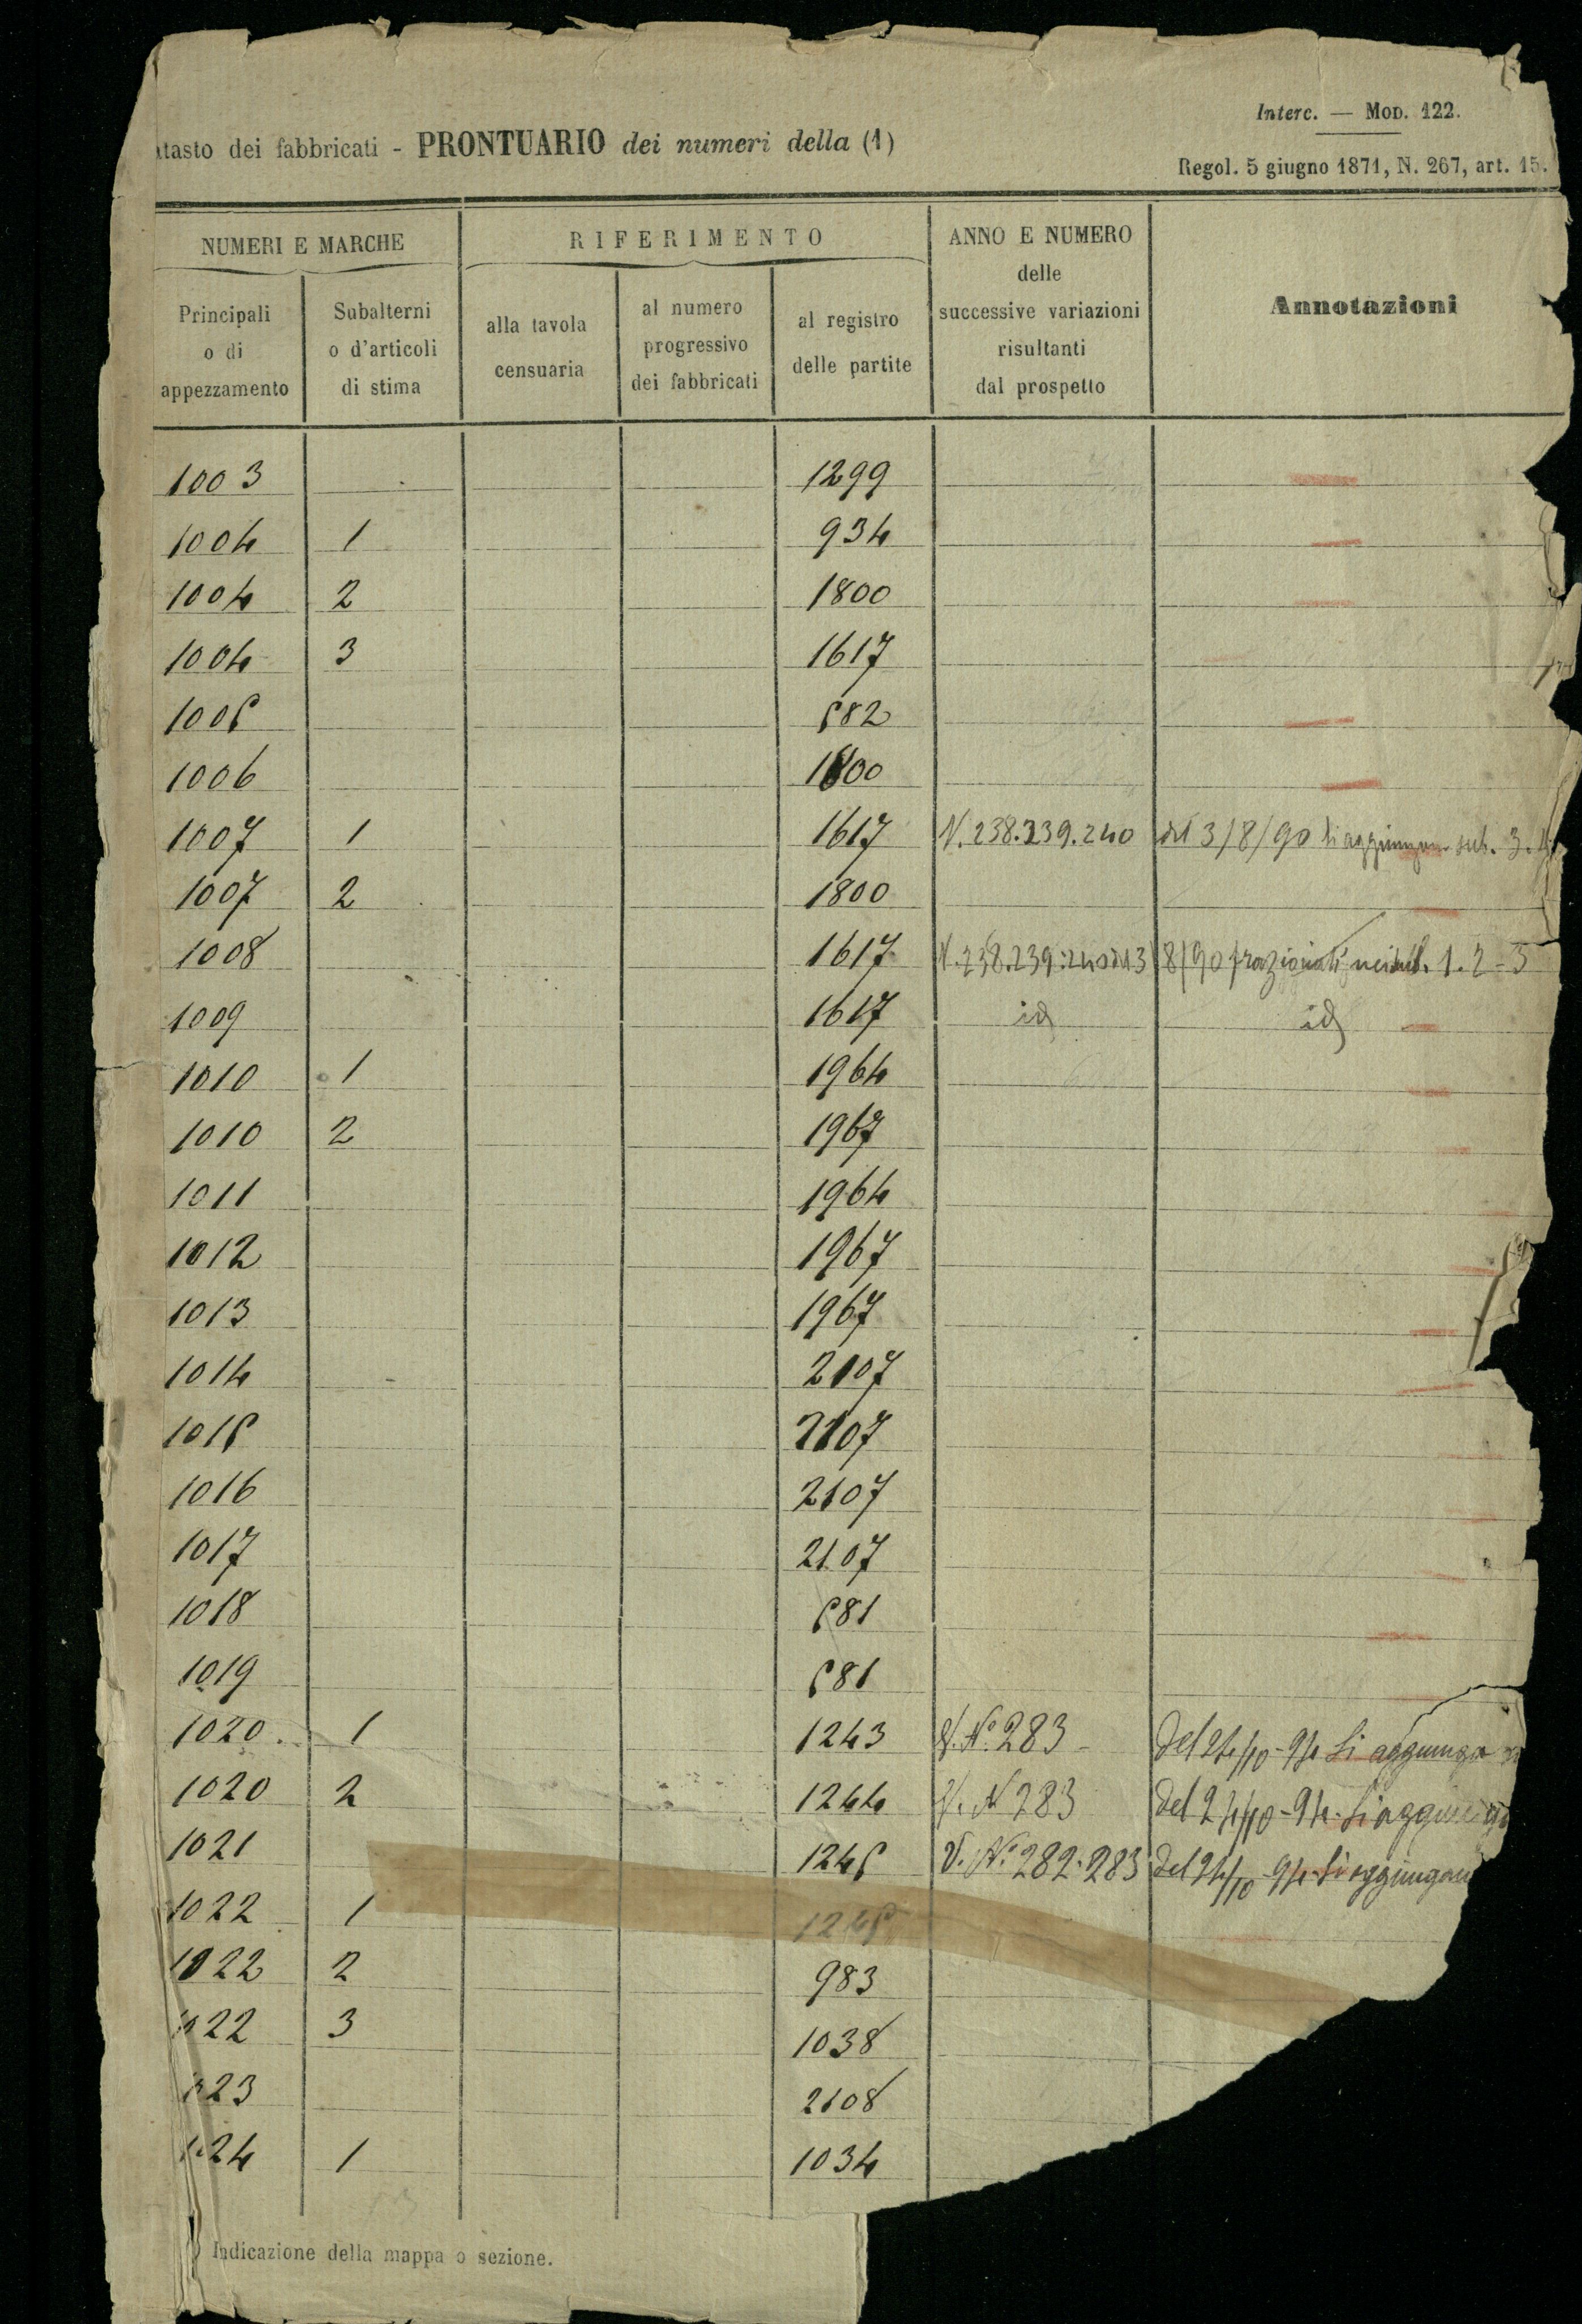 Interc. — Mod. 122.
atasto dei fabbricati - PRONTUARIO dei numeri della (1)
Regol. 5 giugno 1871, N. 267, art. 15.
NUMERI E MARCHE RIFERIMENTO ANNO E NUMERO delle successive variazioni risultanti dal prospetto Annotazioni
Principali o di appezzamento Subalterni o d'articoli di stima alla tavola censuaria al numero progressivo dei fabbricati al registro delle partite
1003 1299
1004 1 934
1004 2 1800
1004 3 1617
1005 582
1006 1800
1007 1 1617 N. 238.239.240 del 3/8/90 si aggiungono sub. 3.
1007 2 1800
1008 1617 N. 238.239.240 del 3/8/90 frazionati nei sub. 1.2-3
1009 1617 id id
1010 1 1964
1010 2 1967
1011 1964
1012 1967
1013 1967
1014 2107
1015 2107
1016 2107
1017 2107
1018 581
1019 581
1020 1 1243 V. N.° 283 Del 24/10-94 Si aggiunga
1020 2 1244 V. N 283 Del 24/10-94 Si aggiunga
1021 1245 V. N.° 282.283 Del 24/10-94 Si aggiungan
1022 1 1245
1022 2 983
1022 3 1038
023 2108
1024 1 1034
Indicazione della mappa o sezione.